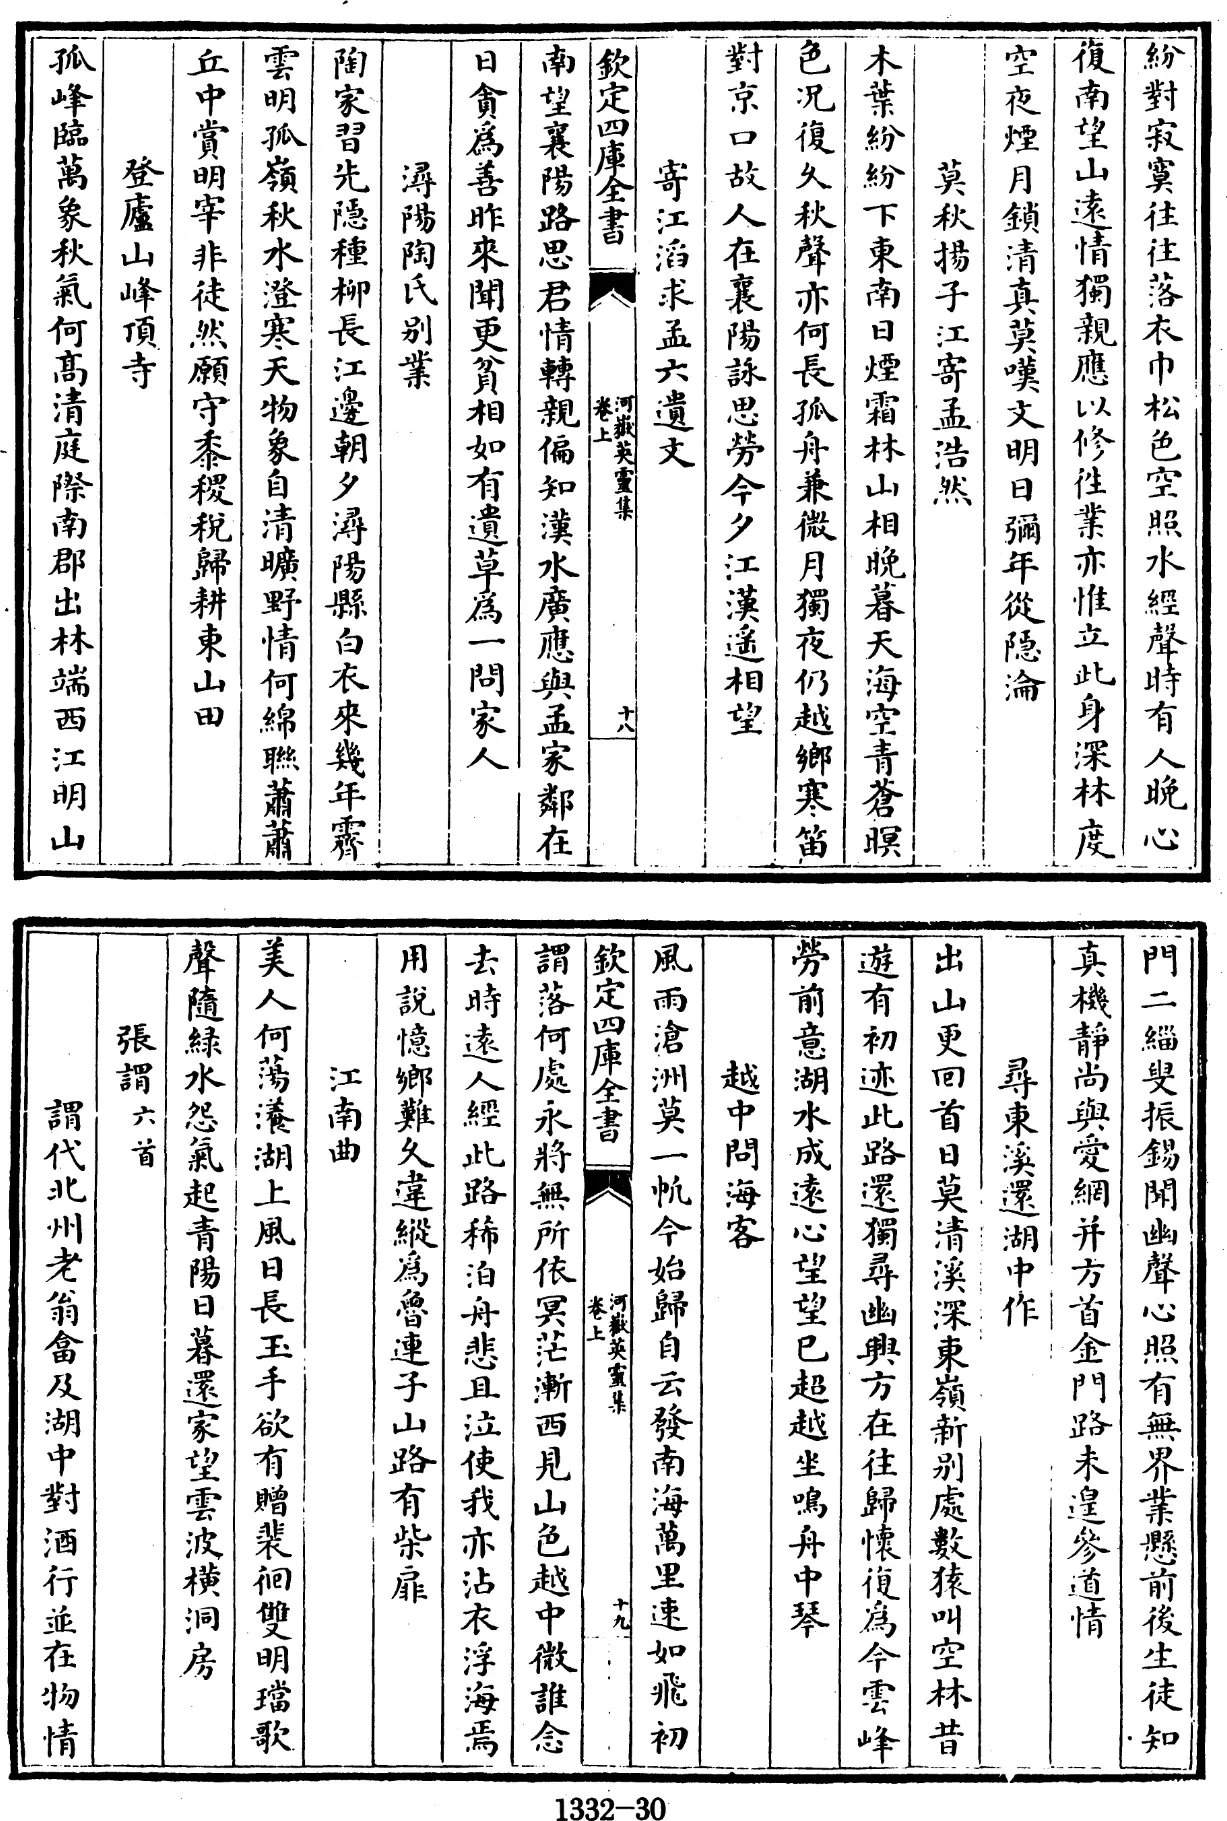 紛對寂寞往往落衣巾松色空照水經聲時有人晚心
復南望山遠情獨親應以修性業亦惟立此身深林度
空夜煙月鎖清真莫嘆文明日彌年從隱淪
莫秋揚子江寄孟浩然
木葉紛紛下東南日煙霜林山相晚暮天海空青蒼暝
色况復久秋聲亦何長孤舟兼微月獨夜仍越鄉寒笛
對京口故人在襄陽詠思勞今夕江漢遥相望
寄江滔求孟六遺文
欽定四庫全書
河嶽英靈集
卷上
十八
南望襄陽路思君情轉親偏知漢水廣應與孟家鄰在
日貪為善昨來聞更貧相如有遺草為一問家人
潯陽陶氏别業
陶家習先隱種柳長江邊朝夕潯陽縣白衣來幾年霽
雲明孤嶺秋水澄寒天物象自清曠野情何綿聯蕭蕭
丘中賞明宰非徒然願守黍稷稅歸耕東山田
登廬山峰頂寺
孤峰臨萬象秋氣何髙清庭際南郡出林端西江明山
門二緇叟振錫聞幽聲心照有無界業懸前後生徒知
真機靜尚與愛網并方首金門路未遑參道情
尋東溪還湖中作
出山更回首日莫清溪深東嶺新别處數猿叫空林昔
遊有初迹此路還獨尋幽興方在往歸懷復為今雲峰
勞前意湖水成遠心望望已超越坐鳴舟中琴
越中問海客
風雨滄洲莫一帆今始歸自云發南海萬里速如飛初
謂落何處永將無所依冥茫漸西見山色越中微誰念
去時遠人經此路稀泊舟悲且泣使我亦沾衣浮海焉
用說憶鄉難久違縱為魯連子山路有柴扉
江南曲
美人何蕩瀁湖上風日長玉手欲有贈裴徊雙明璫歌
聲隨緑水怨氣起青陽日暮還家望雲波橫洞房
欽定四庫全書
河嶽英靈集
卷上
十九
張謂六首
謂代北州老翁畣及湖中對酒行並在物情
1332-30